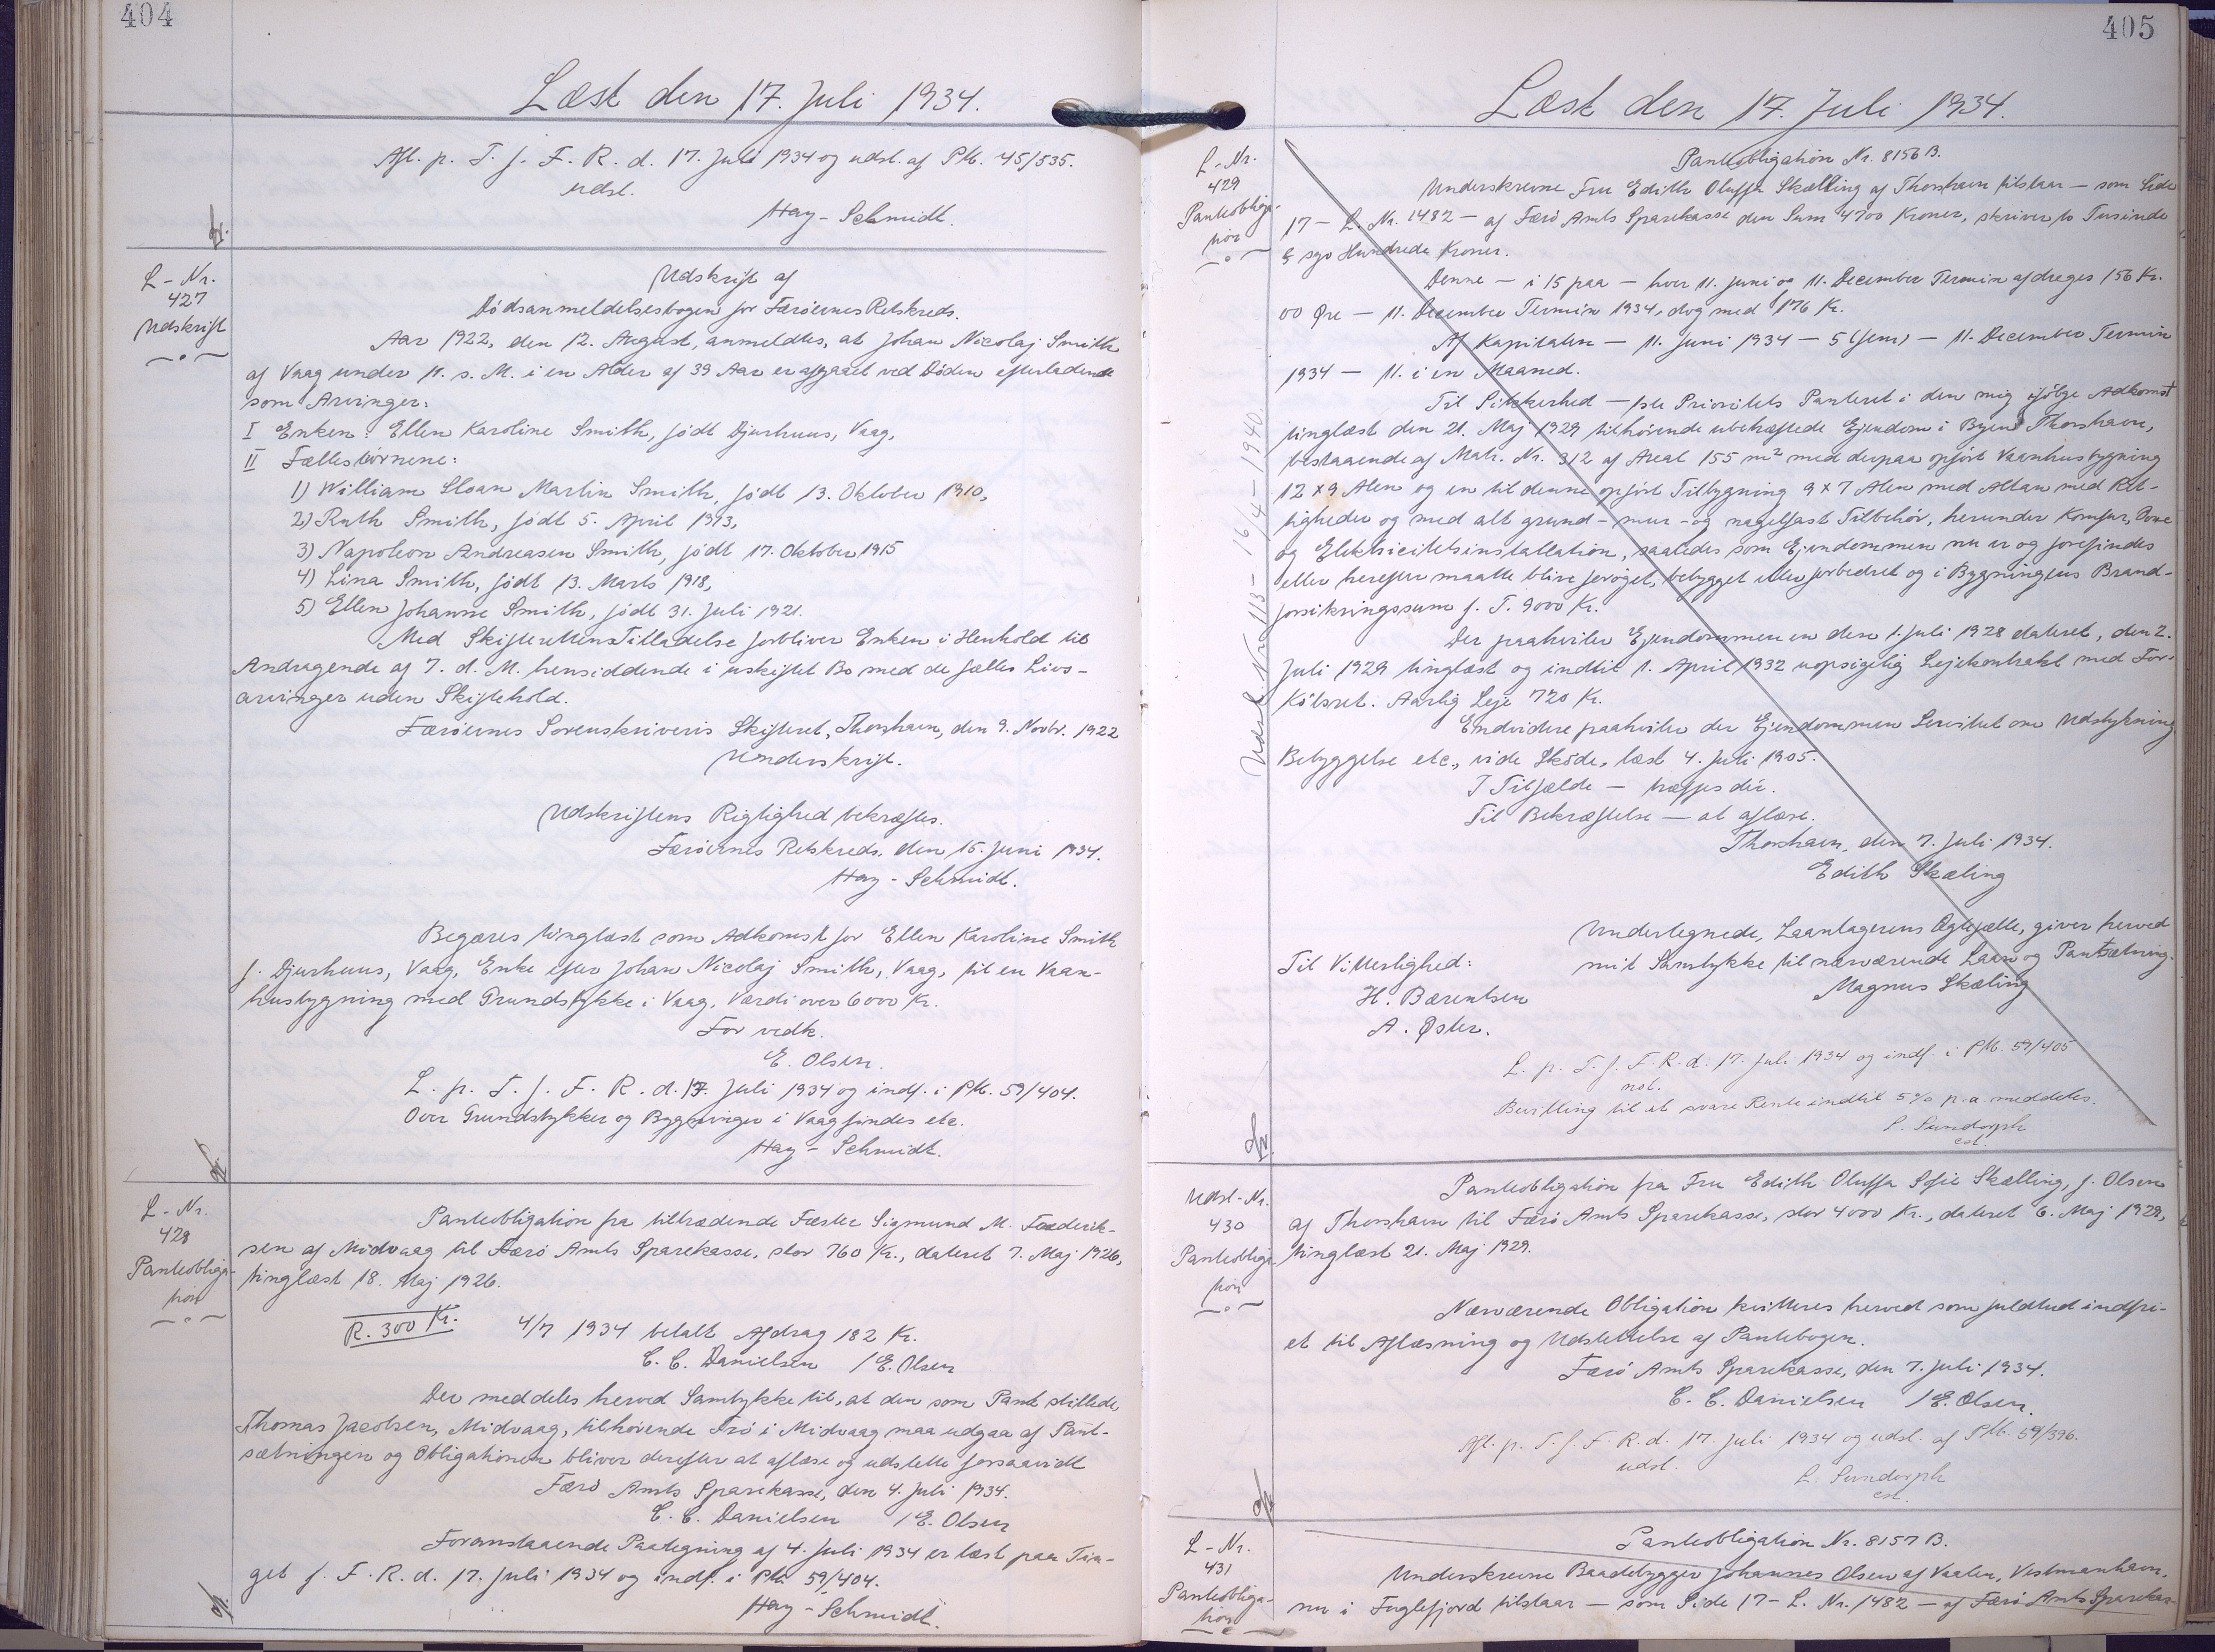 404
Læst den 17. Juli 1934.
Afl. p. T. f. F. R. d. 17. Juli 1934 og udsl. af PM. 45/535.
udsl.
Hay-Schmidt.
L-Nr.
427
Udskrift
Udskrift af
Dødsanmeldelsesbogen for Færøernes Retskreds.
Aar 1922, den 12. August, anmeldtes, at Johan Nicolaj Smith
af Vaag under 11. s. M. i en Alder af 39 Aar er afgaaet ved Døden efterladende
som Arvinger:
I Enken: Ellen Karoline Smith, født Djurhuus, Vaag,
II Fællesbørnene:
1) William Sloan Martin Smith, født 13. Oktober 1910,
2) Ruth Smith, født 5. April 1913,
3) Napoleon Andreasen Smith, født 17. Oktober 1915
4) Lina Smith, født 13. Marts 1918,
5) Ellen Johanne Smith, født 31. Juli 1921.
Med Skifterettens Tilladelse forbliver Enken i Henhold til
Andragende af 7. d. M. hensiddende i uskiftet Bo med de fælles Livs-
arvinger uden Skiftehold.
Færøernes Sorenskriveris Skifteret, Thorshavn, den 9. Novbr. 1922
Underskrift.
Udskriftens Rigtighed bekræftes.
Færøernes Retskreds, den 15. Juni 1934.
Hay-Schmidt.
Begæres tinglæst som Adkomst for Ellen Karoline Smith
f. Djurhuus, Vaag, Enke efter Johan Nicolaj Smith, Vaag, til en Vaan-
husbygning med Grundstykke i Vaag, Værdi over 6000 Kr.
For vedk.
E. Olsen.
L. p. T. f. F. R. d. 17. Juli 1934 og indf. i PM. 59/404.
Over Grundstykker og Bygninger i Vaag findes etc.
Hay-Schmidt.
L-Nr.
428
Panteobliga-
tion
Panteobligation fra tiltrædende Fæster Sigmund M. Frederik-
sen af Midvaag til Færø Amts Sparekasse, stor 760 Kr., dateret 7. Maj 1926,
tinglæst 18. Maj 1926.
R. 300 Kr.
4/7 1934 betalt Afdrag 182 Kr.
C. C. Danielsen /E. Olsen
Der meddeles herved Samtykke til, at den som Pant stillede,
Thomas Jacobsen, Midvaag, tilhørende Trø i Midvaag maa udgaa af Pant-
sætningen og Obligationen bliver derefter at aflæse og udslette forsaavidt
Færø Amts Sparekasse, den 4. Juli 1934.
C. C. Danielsen /E. Olsen
Foranstaaende Paategning af 4. Juli 1934 er læst paa Tin-
get f. F. R. d. 17. Juli 1934 og indf. i PM. 59/404.
Hay-Schmidt.
405
Læst den 17. Juli 1934.
L-Nr.
429
Panteobliga-
tion
Udsl. L. Nr. 113 - 16/4 - 1940.
Panteobligation Nr. 8156 B.
Underskrevne Fru Edith Oluffa Skælling af Thorshavn tilstaar — som Side
17 — L. Nr. 1482 — af Færø Amts Sparekasse den Sum 4700 Kroner, skriver to Tusinde
& syv Hundrede Kroner.
Denne — i 15 paa — hver 11. Juni og 11. December Termin afdrages 156 Kr.
00 Øre — 11. December Termin 1934, dog med 176 Kr.
Af Kapitalen — 11. Juni 1934 — 5 (fem) — 11. December Termin
1934 — 11. i en Maaned.
Til Sikkerhed — 1ste Prioritets Panteret i den mig ifølge Adkomst
tinglæst den 21. Maj 1929 tilhørende ubehæftede Ejendom i Byen Thorshavn,
bestaaende af Matr. Nr. 312 af Areal 155 m² med derpaa opført Vaanhusbygning
12 x 9 Alen og en til denne opført Tilbygning 9 x 7 Alen med Altan med Ret-
tigheder og med alt grund- mur- og nagelfast Tilbehør, herunder Komfur, Ovne
og Elektricitetsinstallation, saaledes som Ejendommen nu er og forefindes
eller herefter maatte blive forøget, bebygget eller forbedret og i Bygningens Brand-
forsikringssum f. T. 9000 Kr.
Der paahviler Ejendommen en den 1. Juli 1928 dateret, den 2.
Juli 1929 tinglæst og indtil 1. April 1932 uopsigelig Lejekontrakt med For-
købsret. Aarlig Leje 720 Kr.
Endvidere paahviler der Ejendommen Servitut om Udstykning
Bebyggelse etc., vide Skøde, læst 4. Juli 1905.
I Tilfælde — træffes dér.
Til Bekræftelse — at aflæse.
Thorshavn, den 7. Juli 1934.
Edith Skæling
Undertegnede, Laantagerens Ægtefælle, giver herved
mit Samtykke til nærværende Laan og Pantsætning.
Magnus Skæling
Til Vitterlighed:
H. Bærentsen
A. Øster.
L. p. T. f. F. R. d. 17. Juli 1934 og indf. i PM. 59/405
not.
Bevilling til at svare Rente indtil 5% p.a. meddeles.
L. Sundorph
cst.
Udsl-Nr.
430
Panteobliga-
tion
Panteobligation fra Fru Edith Oluffa Sofie Skælling, f. Olsen
af Thorshavn til Færø Amts Sparekasse, stor 4000 Kr., dateret 6. Maj 1929,
tinglæst 21. Maj 1929.
Nærværende Obligation kvitteres herved som fuldtud indfri-
et til Aflæsning og Udslettelse af Pantebogen.
Færø Amts Sparekasse, den 7. Juli 1934.
C. C. Danielsen /E. Olsen.
Afl. p. T. f. F. R. d. 17. Juli 1934 og udsl. af PM. 59/396.
udsl.
L. Sundorph
cst.
L-Nr.
431
Panteobliga-
tion
Panteobligation Nr. 8157 B.
Underskrevne Baadebygger Johannes Olsen af Vaalen, Vestmanhavn,
nu i Fuglefjord tilstaar — som Side 17 - L. Nr. 1482 — af Færø Amts Sparekas-